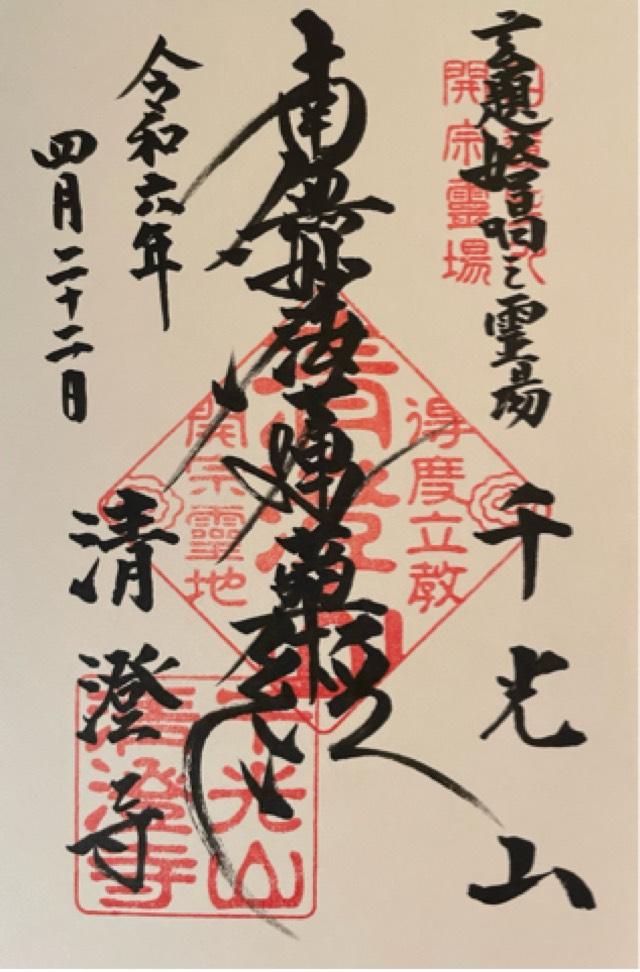 玄題始唱之霊場
千光山
南無妙法蓮華経
令和六年
四月二十二日
清澄寺
開宗霊場
得度立教
開宗霊地
千光山
清澄寺